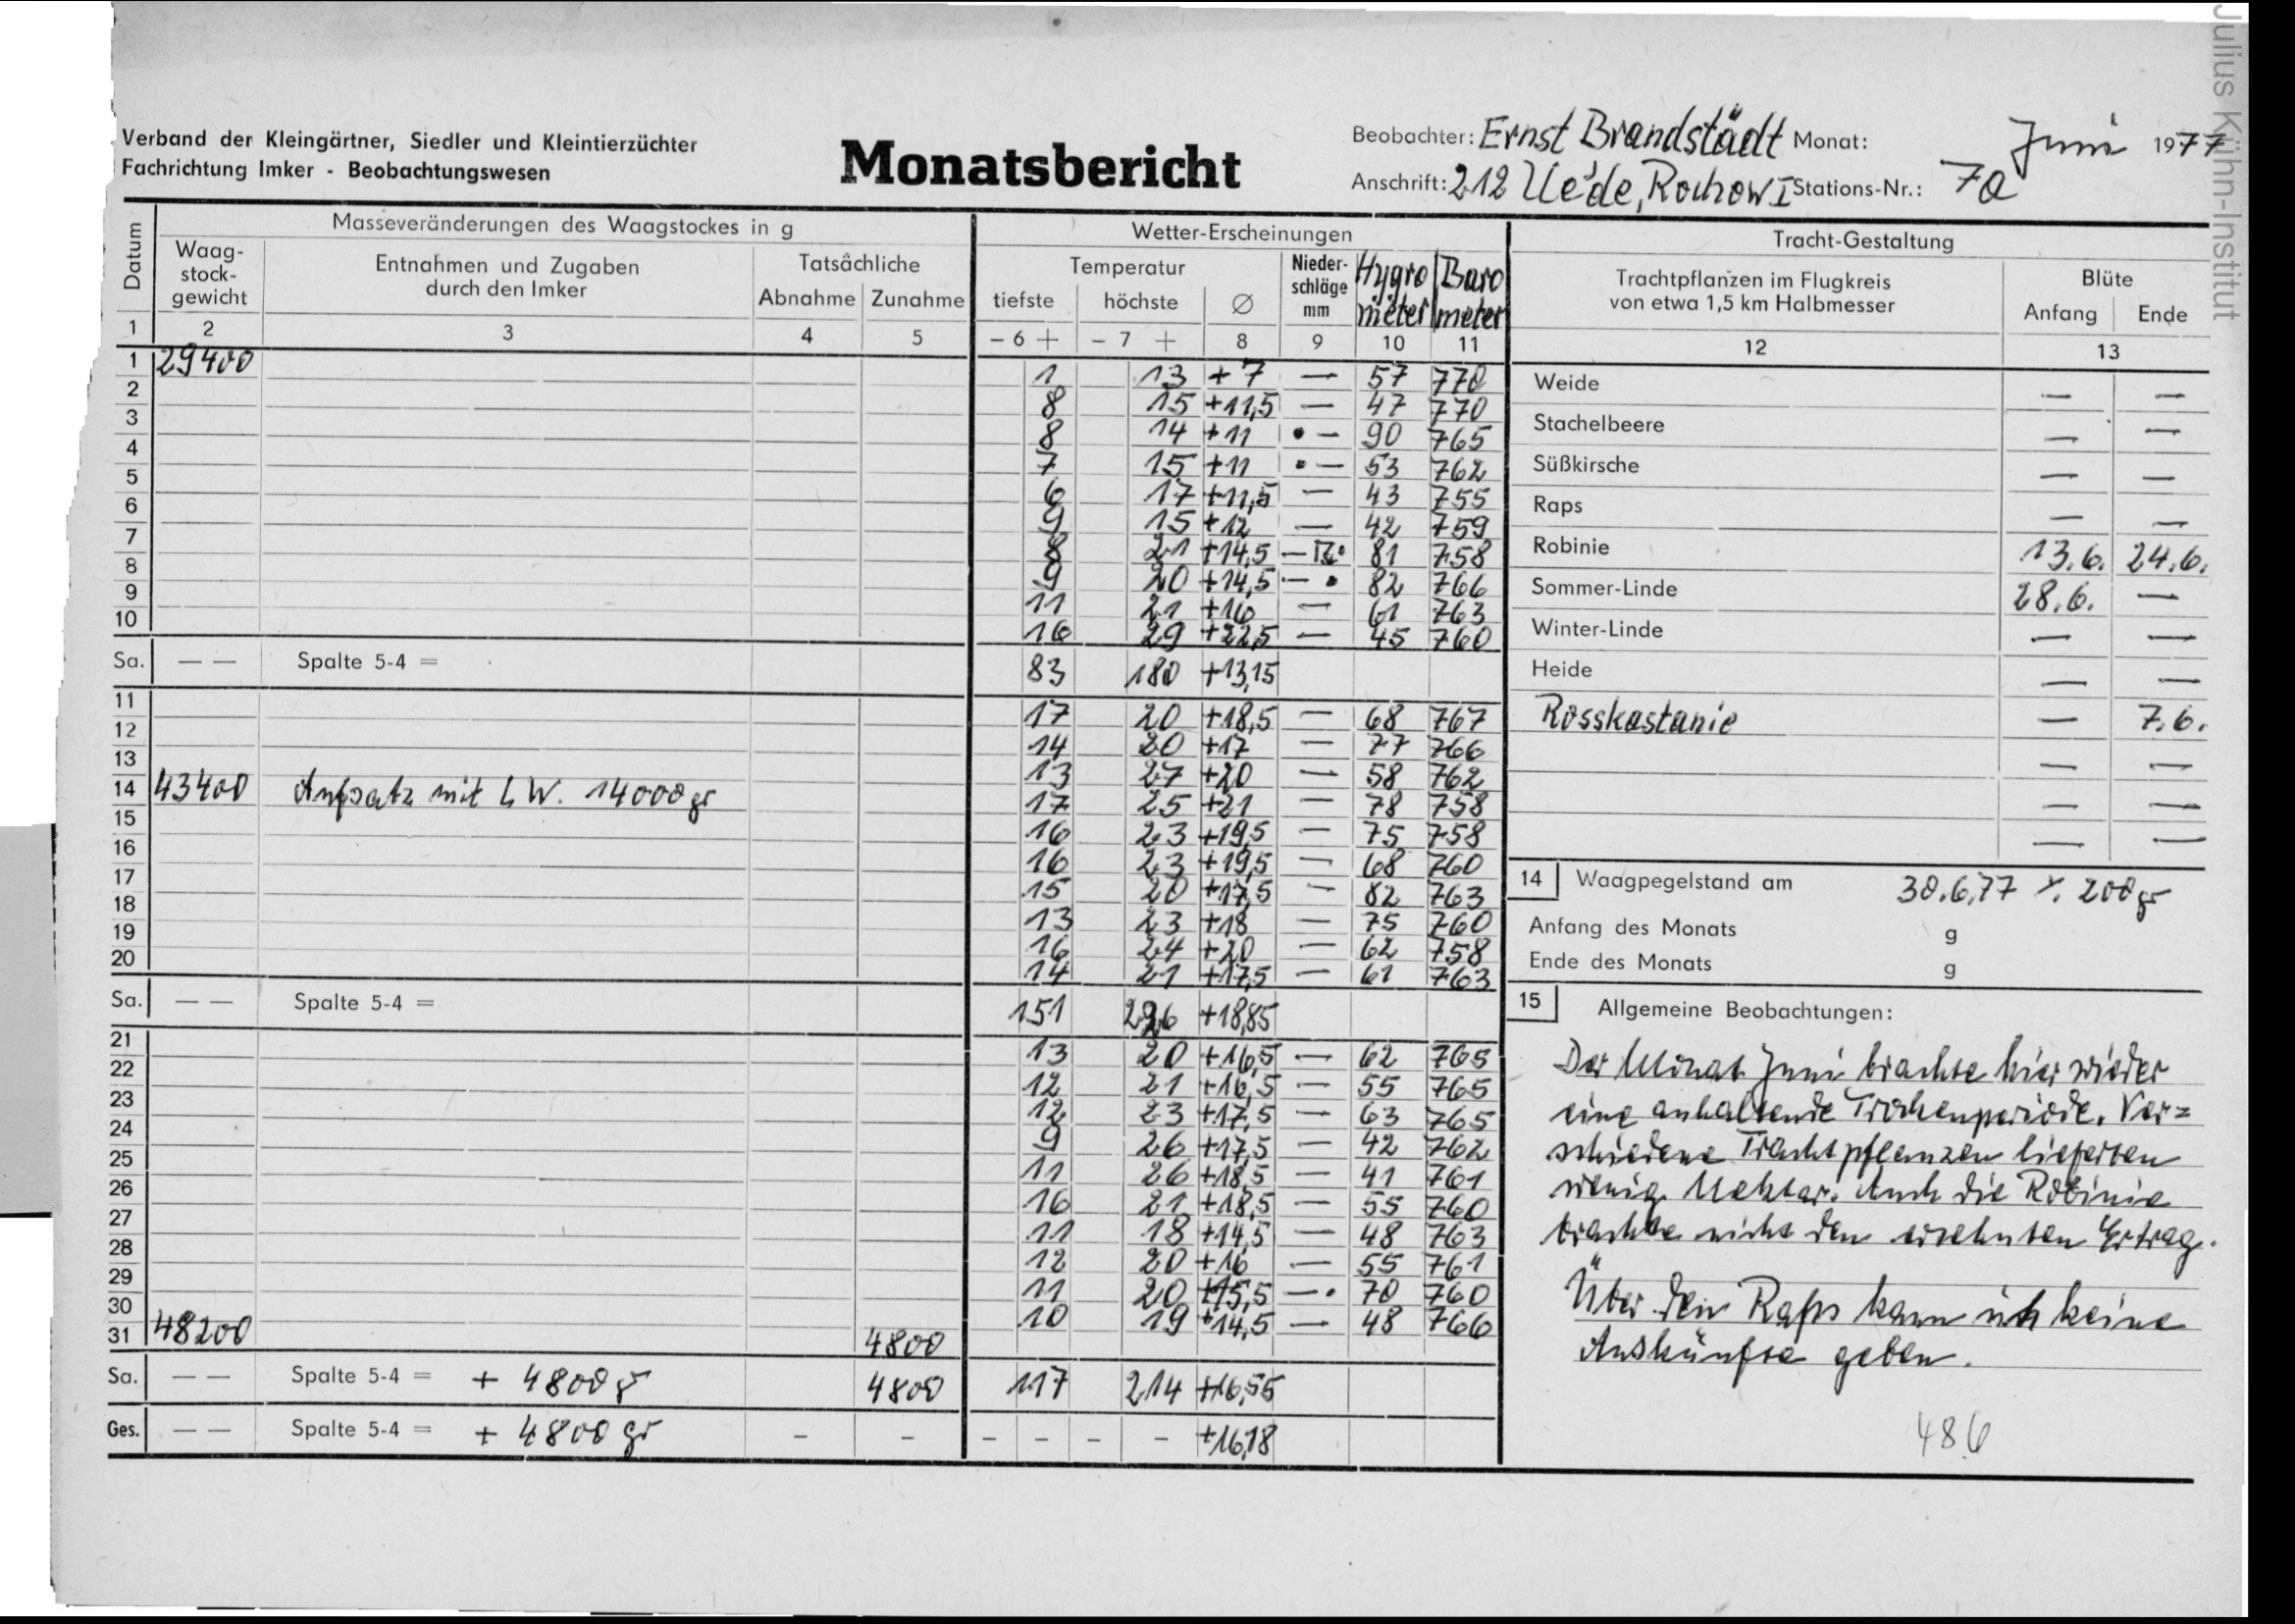 Julius Kühn-Institut
Verband der Kleingärtner, Siedler und Kleintierzüchter
Fachrichtung Imker - Beobachtungswesen
Monatsbericht
Beobachter: Ernst Brandstädt Monat: Juni 1977
Anschrift: 212 Ue'de, Rochow I Stations-Nr.: 7a
Datum
Masseveränderungen des Waagstockes in g
Waag-
stock-
gewicht
Entnahmen und Zugaben
durch den Imker
Tatsächliche
Abnahme Zunahme
Wetter-Erscheinungen
Temperatur
tiefste höchste Ø
Nieder-
schläge
mm
Hygro
meter
Baro
meter
1 2 3 4 5 - 6 + - 7 + 8 9 10 11
1 29400 1 13 +7 — 57 770
2 8 15 +11,5 — 47 770
3 8 14 +11 • — 90 765
4 7 15 +11 • — 53 762
5 6 17 +11,5 — 43 755
6 9 15 +12 — 42 759
7 8 21 +14,5 — 81 758
8 9 20 +14,5 — • 82 766
9 11 21 +16 — 61 763
10 16 29 +22,5 — 45 760
Sa. — — Spalte 5-4 = 83 180 +13,15
11 17 20 +18,5 — 68 767
12 14 20 +17 — 77 766
13 13 27 +20 — 58 762
14 43400 Aufsatz mit L W. 14000 gr 17 25 +21 — 78 758
15 16 23 +19,5 — 75 758
16 16 23 +19,5 — 68 760
17 15 20 +17,5 — 82 763
18 13 23 +18 — 75 760
19 16 24 +20 — 62 758
20 14 21 +17,5 — 61 763
Sa. — — Spalte 5-4 = 151 226 +18,85
21 13 20 +16,5 — 62 765
22 12 21 +16,5 — 55 765
23 12 23 +17,5 — 63 765
24 9 26 +17,5 — 42 762
25 11 26 +18,5 — 41 761
26 16 21 +18,5 — 55 760
27 11 18 +14,5 — 48 763
28 12 20 +16 — 55 761
29 11 20 +15,5 — • 70 760
30 10 19 +14,5 — 48 766
31 48200 4800
Sa. — — Spalte 5-4 = + 4800 g 4800 117 214 +16,55
Ges. — — Spalte 5-4 = + 4800 gr - - - - - - +16,18
Tracht-Gestaltung
Trachtpflanzen im Flugkreis
von etwa 1,5 km Halbmesser
Blüte
Anfang Ende
12 13
Weide — —
Stachelbeere — —
Süßkirsche — —
Raps — —
Robinie 13.6. 24.6.
Sommer-Linde 28.6. —
Winter-Linde — —
Heide — —
Rosskastanie — 7.6.
— —
— —
— —
14 Waagpegelstand am 30.6.77 200 gr
Anfang des Monats g
Ende des Monats g
15 Allgemeine Beobachtungen:
Der Monat Juni brachte hier wieder
eine anhaltende Trockenperiode. Ver=
schiedene Trachtpflanzen lieferten
wenig Nektar. Auch die Robinie
brachte nicht den ersehnten Ertrag.
Über den Raps kann ich keine
Auskünfte geben.
486